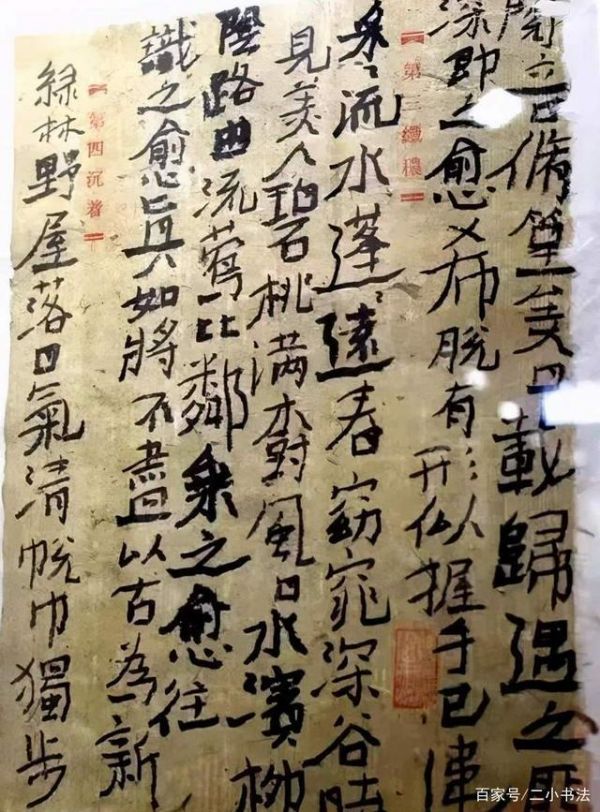 閱音脩篁美曰載歸遇之匪
深即之愈希脫有形似握手已違
第三纖穠
采〻流水蓬〻遠春窈窕深谷時
見美人碧桃滿樹風日水濱柳
陰路曲流鶯比鄰乘之愈往
識之愈真如將不盡以古為新
第四沉着
綠林野屋落日氣清帨巾獨步
百家号/二小书法